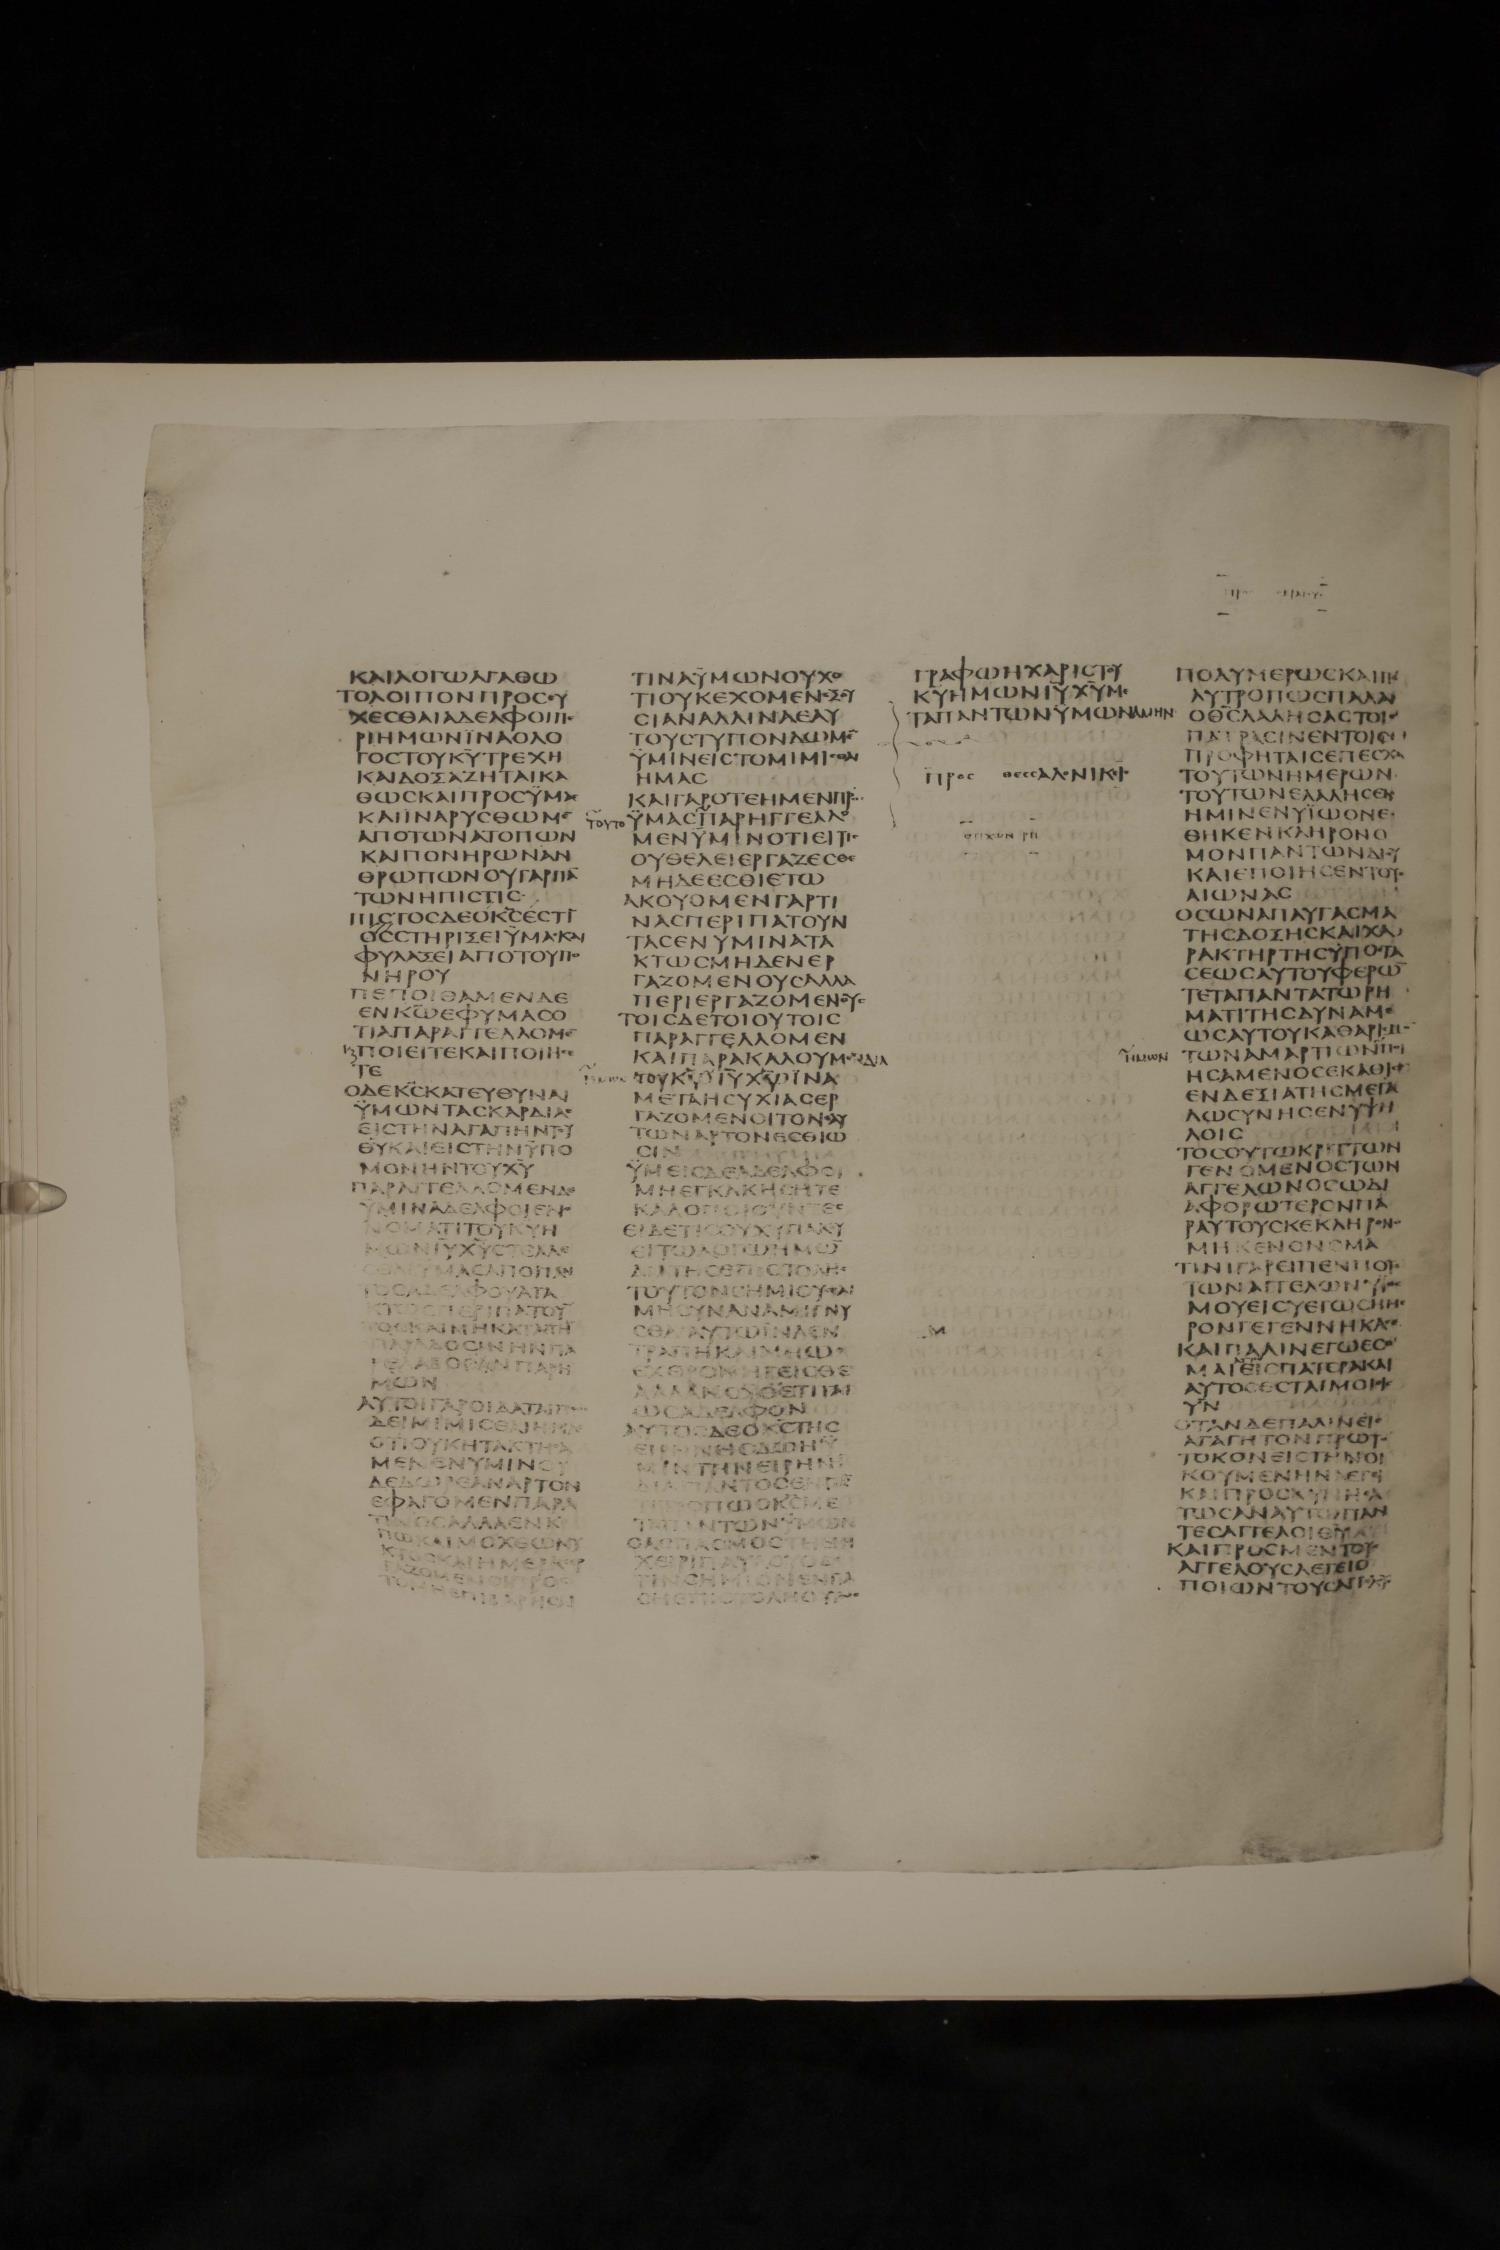 ΚΑΙΛΟΓΩΑΓΑΘΩ
ΤΟΛΟΙΠΟΝΠΡΟΣΕΥ
ΧΕΣΘΑΙΑΔΕΛΦΟΙΠΕ
ΡΙΗΜΩΝΪΝΑΟΛΟ
ΓΟΣΤΟΥΚΥΤΡΕΧΗ
ΚΑΙΔΟΞΑΖΗΤΑΙΚΑ
ΘΩΣΚΑΙΠΡΟΣΫΜΑΣ
ΚΑΙΪΝΑΡΥΣΘΩΜΕ
ΑΠΟΤΩΝΑΤΟΠΩΝ
ΚΑΙΠΟΝΗΡΩΝΑΝ
ΘΡΩΠΩΝΟΥΓΑΡΠΑ
ΤΩΝΗΠΙΣΤΙΣ
ΠΙΣΤΟΣΔΕΟΚΣΕΣΤΙ
ΟΣΣΤΗΡΙΞΕΙΫΜΑΣΚΑΙ
ΦΥΛΑΞΕΙΑΠΟΤΟΥΠΟ
ΝΗΡΟΥ
ΠΕΠΟΙΘΑΜΕΝΔΕ
ΕΝΚΩΕΦΥΜΑΣΟ
ΤΙΑΠΑΡΑΓΓΕΛΛΟΜΕ
ΠΟΙΕΙΤΕΚΑΙΠΟΙΗΣΕ
ΤΕ
ΟΔΕΚΣΚΑΤΕΥΘΥΝΑΙ
ΫΜΩΝΤΑΣΚΑΡΔΙΑΣ
ΕΙΣΤΗΝΑΓΑΠΗΝΤΟΥ
ΘΥΚΑΙΕΙΣΤΗΝΫΠΟ
ΜΟΝΗΝΤΟΥΧΥ
ΠΑΡΑΓΓΕΛΛΟΜΕΝΔΕ
ΫΜΙΝΑΔΕΛΦΟΙΕΝΟ
ΝΟΜΑΤΙΤΟΥΚΥΗ
ΜΩΝΙΥΧΥΣΤΕΛΛΕ
ΣΘΑΙΥΜΑΣΑΠΟΠΑΝ
ΤΟΣΑΔΕΛΦΟΥΑΤΑ
ΚΤΩΣΠΕΡΙΠΑΤΟΥ
ΤΟΣΚΑΙΜΗΚΑΤΑΤΗ
ΜΩΝ
ΑΥΤΟΙΓΑΡΟΙΔΑΤΑΙΠΩΣ
ΔΕΙΜΙΜΙΣΘΑΙΗΜΑΣ
ΟΤΙΟΥΚΗΤΑΚΤΗΣΑ
ΜΕΝΕΝΥΜΙΝΟΥ
ΔΕΔΩΡΕΑΝΑΡΤΟΝ
ΕΦΑΓΟΜΕΝΠΑΡΑ
ΤΙΝΟΣΑΛΛΑΕΝΚΟ
ΠΩΚΑΙΜΟΧΘΩΝΥ
ΤΙΝΑΫΜΩΝΟΥΧΟ
ΤΙΟΥΚΕΧΟΜΕΝΕΞΟΥ
ΣΙΑΝΑΛΛΙΝΑΕΑΥ
ΤΟΥΣΤΥΠΟΝΔΩΜΕ
ΫΜΙΝΕΙΣΤΟΜΙΜΙΣΘΑΙ
ΗΜΑΣ
ΚΑΙΓΑΡΟΤΕΗΜΕΝΠΡΟΣ
ΤΟΥΤΟ
ΫΜΑΣΠΑΡΗΓΓΕΛΛΟ
ΜΕΝΫΜΙΝΟΤΙΕΙΤΙΣ
ΟΥΘΕΛΕΙΕΡΓΑΖΕΣΘΕ
ΜΗΔΕΕΣΘΙΕΤΩ
ΑΚΟΥΟΜΕΝΓΑΡΤΙ
ΝΑΣΠΕΡΙΠΑΤΟΥΝ
ΤΑΣΕΝΥΜΙΝΑΤΑ
ΚΤΩΣΜΗΔΕΝΕΡ
ΓΑΖΟΜΕΝΟΥΣΑΛΛΑ
ΠΕΡΙΕΡΓΑΖΟΜΕΝΟΥΣ
ΤΟΙΣΔΕΤΟΙΟΥΤΟΙΣ
ΠΑΡΑΓΓΕΛΛΟΜΕΝ
ΚΑΙΠΑΡΑΚΑΛΟΥΜΕΝΔΙΑ
ΤΟΥΚΥΙΥΧΥΪΝΑ
ΜΕΤΑΗΣΥΧΙΑΣΕΡ
ΓΑΖΟΜΕΝΟΙΤΟΝΕΑΥ
ΤΩΝΑΡΤΟΝΕΣΘΙΩ
ΣΙΝ
ΫΜΕΙΣΔΕΑΔΕΛΦΟΙ
ΜΗΕΓΚΑΚΗΣΗΤΕ
ΚΑΛΟΠΟΙΟΥΝΤΕΣ
ΕΙΔΕΤΙΣΟΥΧΥΠΑΚΟΥ
ΕΙΤΩΛΟΓΩΗΜΩ
ΔΙΑΤΗΣΕΠΙΣΤΟΛΗΣ
ΤΟΥΤΟΝΣΗΜΙΟΥΣΘΑΙ
ΜΗΣΥΝΑΝΑΜΙΓΝΥ
ΣΘΑΙΑΥΤΩΪΝΑΕΝ
ΤΡΑΠΗΚΑΙΜΗΩΣ
ΕΧΘΡΟΝΗΓΕΙΣΘΕ
ΑΛΛΑΝΟΥΘΕΤΙΤΑΙ
ΩΣΑΔΕΛΦΟΝ
ΑΥΤΟΣΔΕΟΚΣΤΗΣ
ΕΙΡΗΝΗΣΔΩΗΫ
ΜΙΝΤΗΝΕΙΡΗΝΗ
ΔΙΑΠΑΝΤΟΣΕΝΠΑ
ΤΙΤΡΟΠΩΟΚΣΜΕ
ΤΑΠΑΝΤΩΝΫΜΩΝ
ΟΑΣΠΑΣΜΟΣΤΗΕΜΗ
ΧΕΙΡΙΠΑΥΛΟΥΟΕΣ
ΤΙΝΣΗΜΙΟΝΕΝΠΑ
ΣΗΕΠΙΣΤΟΛΗΟΥΤΩΣ
ΓΡΑΦΩΗΧΑΡΙΣΤΟΥ
ΚΥΗΜΩΝΙΥΧΥΜΕ
ΤΑΠΑΝΤΩΝΥΜΩΝΑΜΗΝ
ΠΡΟΣ ΘΕΣΣΑΛΟΝΙΚΙΣ
ΣΤΙΧΩΝ ΡΠ
ΠΡΟΣ ΕΒΡΑΙΟΥΣ
ΠΟΛΥΜΕΡΩΣΚΑΙΠΟ
ΛΥΤΡΟΠΩΣΠΑΛΑΙ
ΟΘΣΛΑΛΗΣΑΣΤΟΙΣ
ΠΑΤΡΑΣΙΝΕΝΤΟΙΣ
ΠΡΟΦΗΤΑΙΣΕΠΕΣΧΑ
ΤΟΥΤΩΝΗΜΕΡΩΝ
ΤΟΥΤΩΝΕΛΑΛΗΣΕΝ
ΗΜΙΝΕΝΥΪΩΟΝΕ
ΘΗΚΕΝΚΛΗΡΟΝΟ
ΜΟΝΠΑΝΤΩΝΔΙΟΥ
ΚΑΙΕΠΟΙΗΣΕΝΤΟΥΣ
ΑΙΩΝΑΣ
ΟΣΩΝΑΠΑΥΓΑΣΜΑ
ΤΗΣΔΟΞΗΣΚΑΙΧΑ
ΡΑΚΤΗΡΤΗΣΫΠΟΣΤΑ
ΣΕΩΣΑΥΤΟΥΦΕΡΩ
ΤΕΤΑΠΑΝΤΑΤΩΡΗ
ΜΑΤΙΤΗΣΔΥΝΑΜΕ
ΩΣΑΥΤΟΥΚΑΘΑΡΙΣΜΟ
ΗΜΩΝ
ΤΩΝΑΜΑΡΤΙΩΝΠΟΙ
ΗΣΑΜΕΝΟΣΕΚΑΘΙΣΕ
ΕΝΔΕΞΙΑΤΗΣΜΕΓΑ
ΛΩΣΥΝΗΣΕΝΥΨΗ
ΛΟΙΣ
ΤΟΣΟΥΤΩΚΡΙΤΤΩΝ
ΓΕΝΟΜΕΝΟΣΤΩΝ
ΑΓΓΕΛΩΝΟΣΩΔΙ
ΑΦΟΡΩΤΕΡΟΝΠΑ
ΡΑΥΤΟΥΣΚΕΚΛΗΡΟΝΟ
ΜΗΚΕΝΟΝΟΜΑ
ΤΙΝΙΓΑΡΕΙΠΕΝΠΟΤΕ
ΤΩΝΑΓΓΕΛΩΝΥΙΟΣ
ΜΟΥΕΙΣΥΕΓΩΣΗΜΕ
ΡΟΝΓΕΓΕΝΝΗΚΑΣΕ
ΚΑΙΠΑΛΙΝΕΓΩΕΣΟ
ΜΑΙΕΙΣΠΑΤΕΡΑΚΑΙ
ΑΥΤΟΣΕΣΤΑΙΜΟΙΕΙΣ
ΥΝ
ΟΤΑΝΔΕΠΑΛΙΝΕΙΣ
ΑΓΑΓΗΤΟΝΠΡΩΤΟ
ΤΟΚΟΝΕΙΣΤΗΝΟΙ
ΚΟΥΜΕΝΗΝΛΕΓΕΙ
ΚΑΙΠΡΟΣΚΥΝΗΣΑ
ΤΩΣΑΝΑΥΤΩΠΑΝ
ΤΕΣΑΓΓΕΛΟΙΘΥ
ΚΑΙΠΡΟΣΜΕΝΤΟΥΣ
ΑΓΓΕΛΟΥΣΛΕΓΕΙΟ
ΠΟΙΩΝΤΟΥΣΑΓΓΕΛΟΥΣ